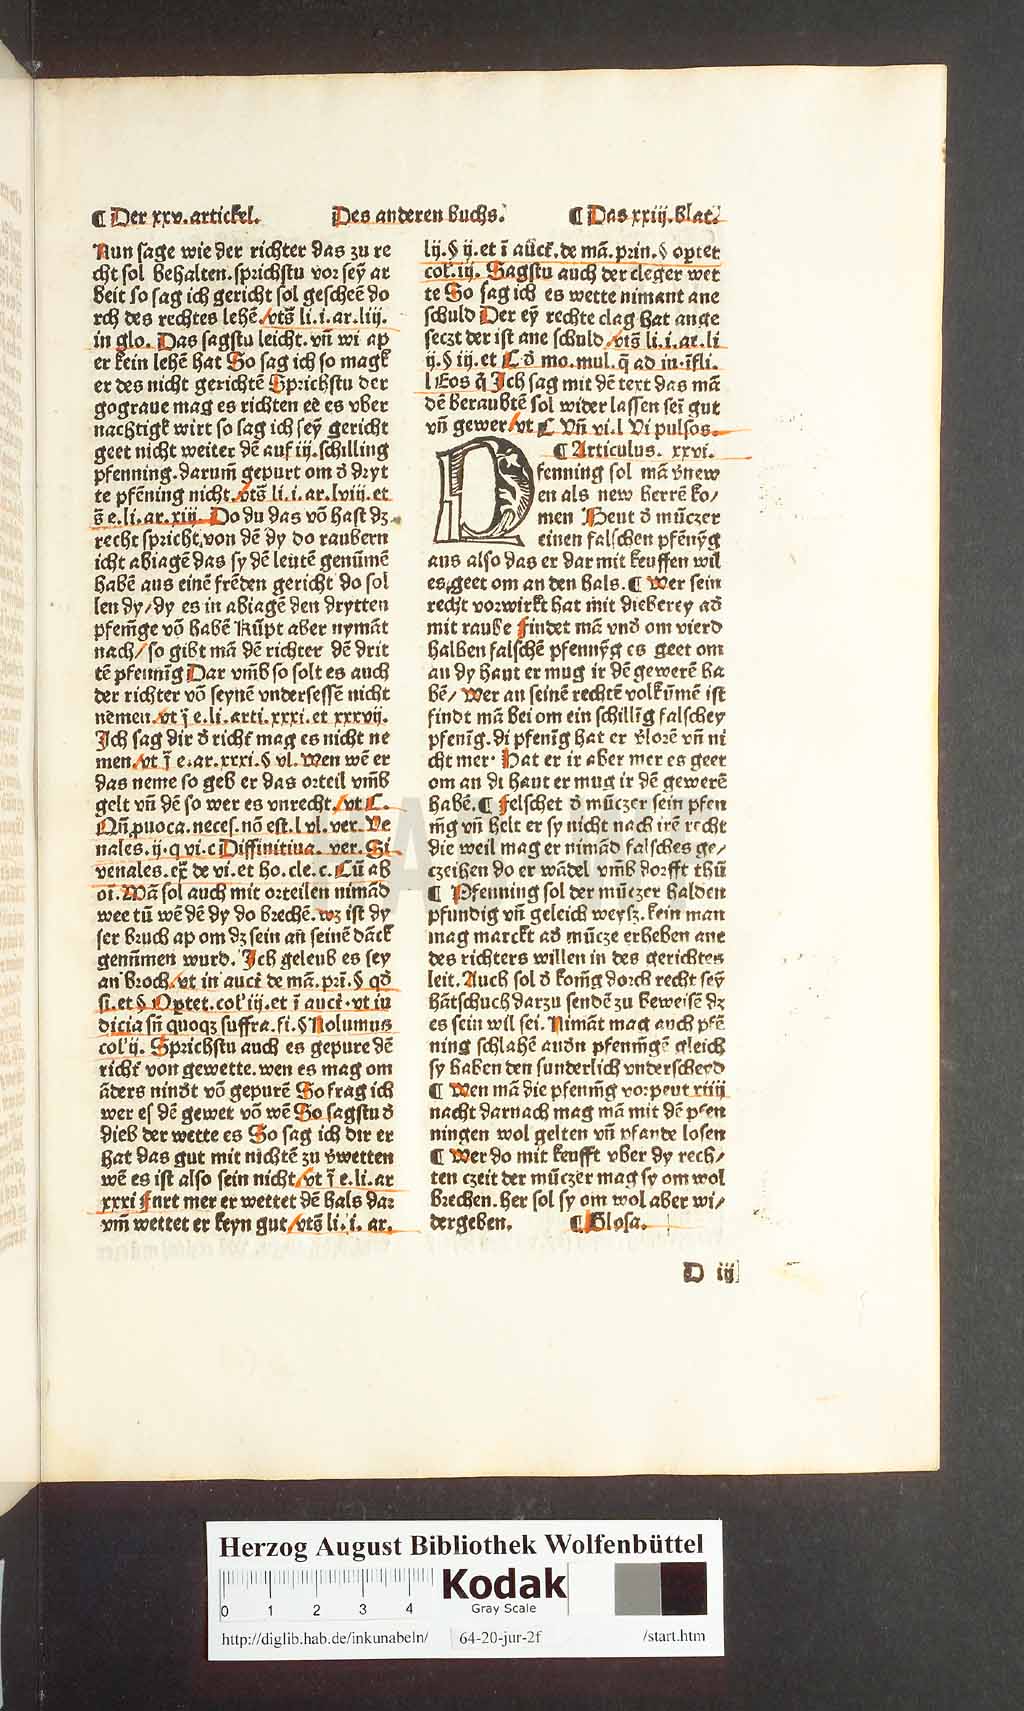 ¶ Der xxv. artickel. Des anderen buchs. ¶ Das xxiij. blat.
Nun sage wie der richter das zu re
cht sol behalten. sprichstu vor sey̆ ar
beit so sag ich gericht sol gescheẽ do
rch des rechtes lehẽ /vts̃ li. i. ar. liij.
in glo. Das sagstu leicht. vñ wi ap
er kein lehẽ hat So sag ich so magk
er des nicht gerichtẽ Sprichstu der
gograue mag es richten eẽ es vber
nachtigk wirt so sag ich sey̆ gericht
geet nicht weiter dẽ auf iij. schilling
pfenning. darum̃ gepurt om d̕ dryt
te pfẽning nicht. /vts̃ li. i. ar. lviij. et
s̃ e. li. ar. xiij. Do du das võ hast dz
recht spricht, von dẽ dy do raubern
icht abiagẽ das sy dẽ leutẽ genũmẽ
habẽ aus einẽ frẽden gericht do sol
len dy / dy es in abiagẽ den drytten
pfem̃ge võ habẽ Kũpt aber nymãt
nach / so gibt mã dẽ richter dẽ drit
tẽ pfennĩg Dar vm̃b so solt es auch
der richter võ seynẽ vndersessẽ nicht
nẽmen. /vt j̃ e. li. arti. xxxi. et xxxvij.
Ich sag dir d̕ richt̕ mag es nicht ne
men /vt j̃ e. ar. xxxi. § vl. Wen wẽ er
das neme so geb er das orteil vm̃b
gelt vñ dẽ so wer es vnrecht. /vt C.
Qñ puoca. neces. nõ est. l vl. ver. Ve
nales. ij. q vi. c Diffinitiua. ver. Si
venales. ex̕ de vi. et ho. cle. c. Cũ ab
oĩ. Mã sol auch mit orteilen nimãd
wee tũ wẽ dẽ dy do brechẽ. wz ist dy
ser bruch ap om dz sein añ seinẽ dãck
genũmen wurd. Ich geleub es sey
an broch /vt in auct̕ de mã. prĩ. § qd̕
si. et § Optet. col̕ iij. et ĩ auct̕. vt iu
dicia sñ quoqz suffra. fi. § Nolumus
col̕ ij. Sprichstu auch es gepure dẽ
richt̕ von gewette. wen es mag om
ãders nindt võ gepurẽ So frag ich
wer es dẽ gewet võ wẽ So sagstu d̕
dieb der wette es So sag ich dir er
hat das gut mit nichtẽ zu v̕wetten
wẽ es ist also sein nicht /vt j̃ e. li. ar
xxxi Fnrt mer er wettet dẽ hals dar
vm̃ wettet er keyn gut /vts̃ li. i. ar.
lij. § ij. et ĩ auct̕. de mã. prin. § optet
col̕. iij. Sagstu auch der cleger wet
te So sag ich es wette nimant ane
schuld Der ey̆ rechte clag hat ange
seczt der ist ane schuld /vts̃ li. i. ar. li
ij. § iij. et C d̕ mo. mul. q̃ ad in. ĩfli.
l Eos q̃ Ich sag mit dẽ text das mã
dẽ beraubtẽ sol wider lassen seĩ gut
vñ gewer /vt C Vñ vi. l Vi pulsos.
¶ Articulus. xxvi.
Pfenning sol mã v̕new
en als new herrẽ ko/
men Beut d̕ mũczer
einen falschen pfẽny̆g
aus also das er dar mit keuffen wil
es geet om an den hals. ¶ Wer sein
recht vorwirkt hat mit dieberey ad̕
mit raube Findet mã vnd̕ om vierd
halben falschẽ pfenny̆g es geet om
an dy haut er mug ir dẽ gewerẽ ha
bẽ / Wer an seinẽ rechtẽ volkũmẽ ist
findt mã bei om ein schillĩg falschey
pfenĩg. di pfenĩg hat er v̕lorẽ vñ ni
cht mer. Hat er ir aber mer es geet
om an di haut er mug ir dẽ gewerẽ
habẽ. ¶ Felschet d̕ mũczer sein pfen
m̃g vñ helt er sy nicht nach irẽ recht
die weil mag er nimãd falsches ge/
czeihen do er wãdel vm̃b dorfft thũ
¶ Pfenning sol der mũczer halden
pfundig vñ geleich weysz. kein man
mag marckt ad̕ mũcze erheben ane
des richters willen in des gerichtes
leit. Auch sol d̕ kom̃g dorch recht sey̆
hãtschuch darzu sendẽ zu beweisẽ dz
es sein wil sei. Nimãt mag auch pfẽ
ning schlahẽ aud̕n pfenm̃gẽ gleich
sy haben den sunderlich vnderscheyd
¶ Wen mã die pfenm̃g vorpeut xiiij
nacht darnach mag mã mit dẽ pfen
ningen wol gelten vñ pfande losen
¶ Wer do mit keufft vber dy rech/
ten czeit der mũczer mag sy om wol
brechen. her sol sy om wol aber wi/
dergeben. ¶ Glosa.
D iij
Herzog August Bibliothek Wolfenbüttel
0 1 2 3 4
Kodak
Gray Scale
http://diglib.hab.de/inkunabeln/ 64-20-jur-2f /start.htm